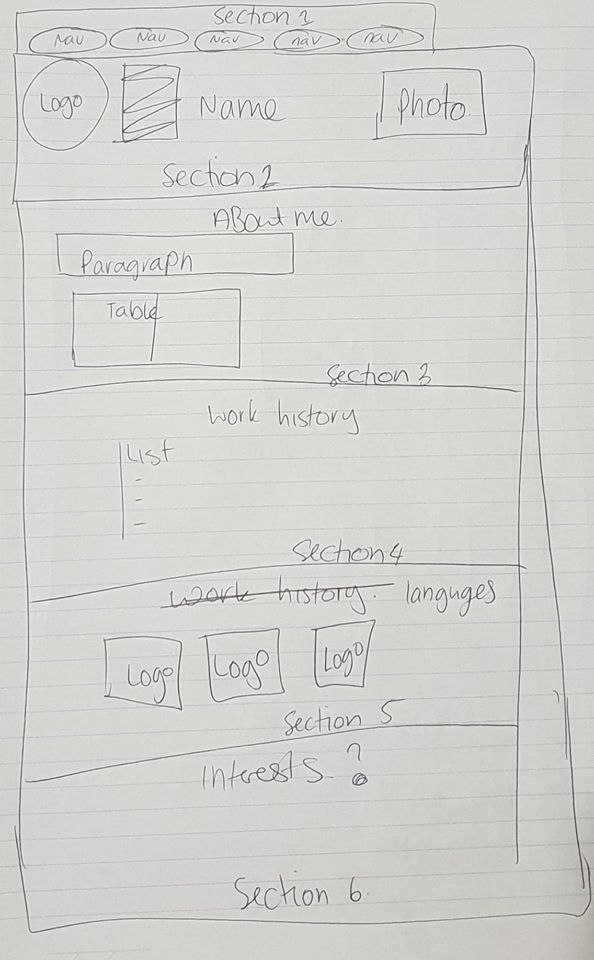 Section 1
Nav Nav Nav nav nav
Logo Name Photo
Section 2
ABout me.
Paragraph
Table
Section 3
Work history
List
-
-
-
Section 4
work history. languges
Logo Logo Logo
Section 5
interests. ?
Section 6.